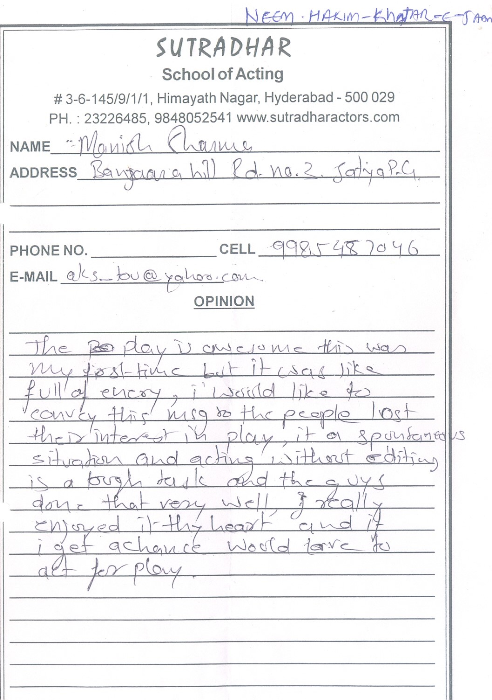 NEEM-HAKIM-KhATAR-E-JAAN
SUTRADHAR
School of Acting
# 3-6-145/9/1/1, Himayath Nagar, Hyderabad - 500 029
PH. : 23226485, 9848052541 www.sutradharactors.com
NAME Manish Sharma
ADDRESS Banjaara hill Rd. no. 2. P.G.
PHONE NO. CELL 9985487046
E-MAIL aks_bu@yahoo.com.
OPINION
The play is awesome this was
my first time but it was like
full of enery, i would like to
convey this msg to the people lost
their interest in play, it a spontaneous
situation and acting without editing
is a tough task and the guys
done that very well, I really
enjoyed it thy heart and if
i get achance would love to
act for play.